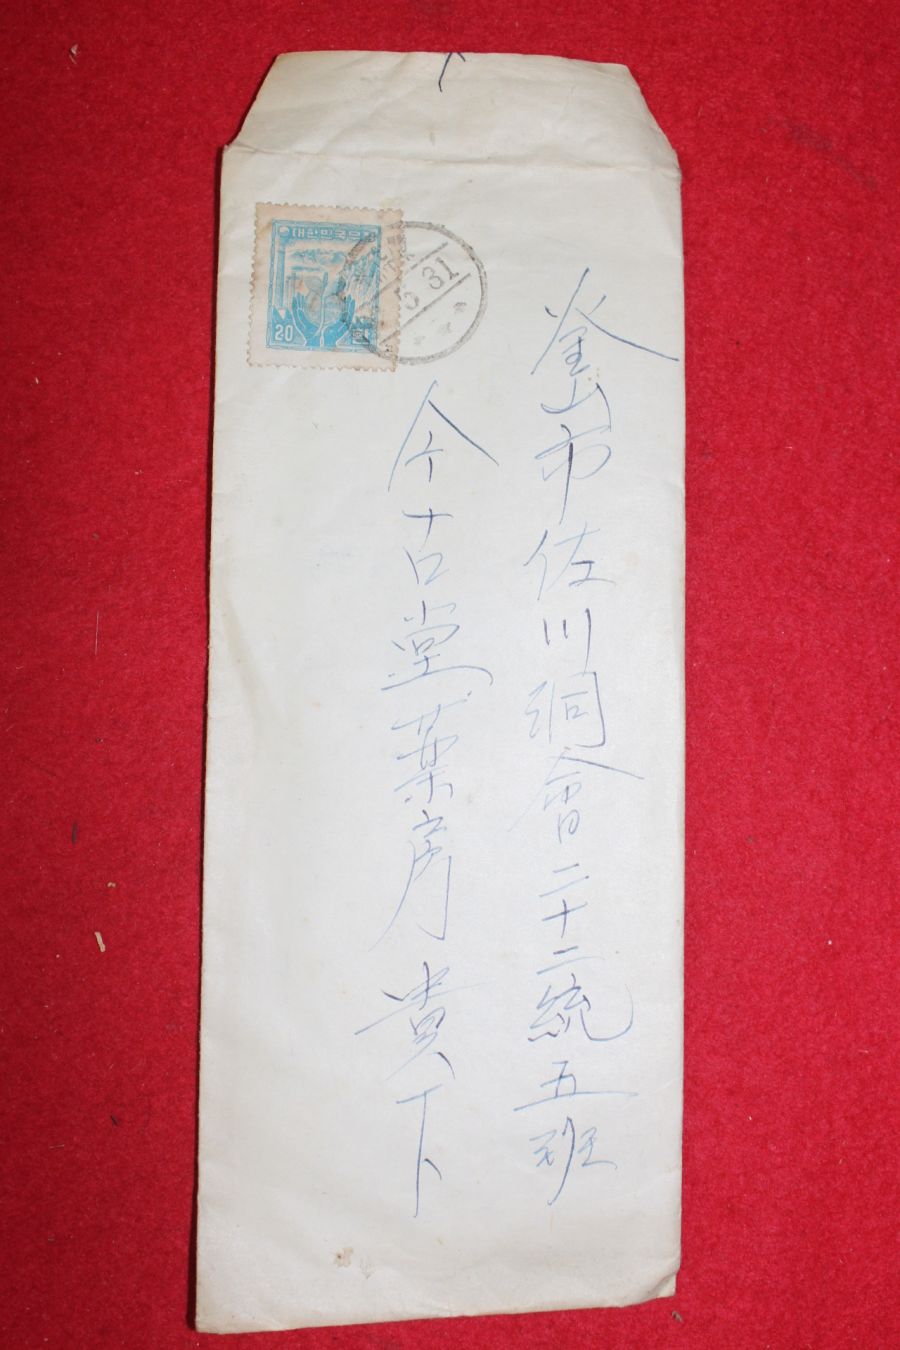 釜山市佐川洞會二十二統五班
今古堂薬房 貴下
대한민국우표
20
환
5 31